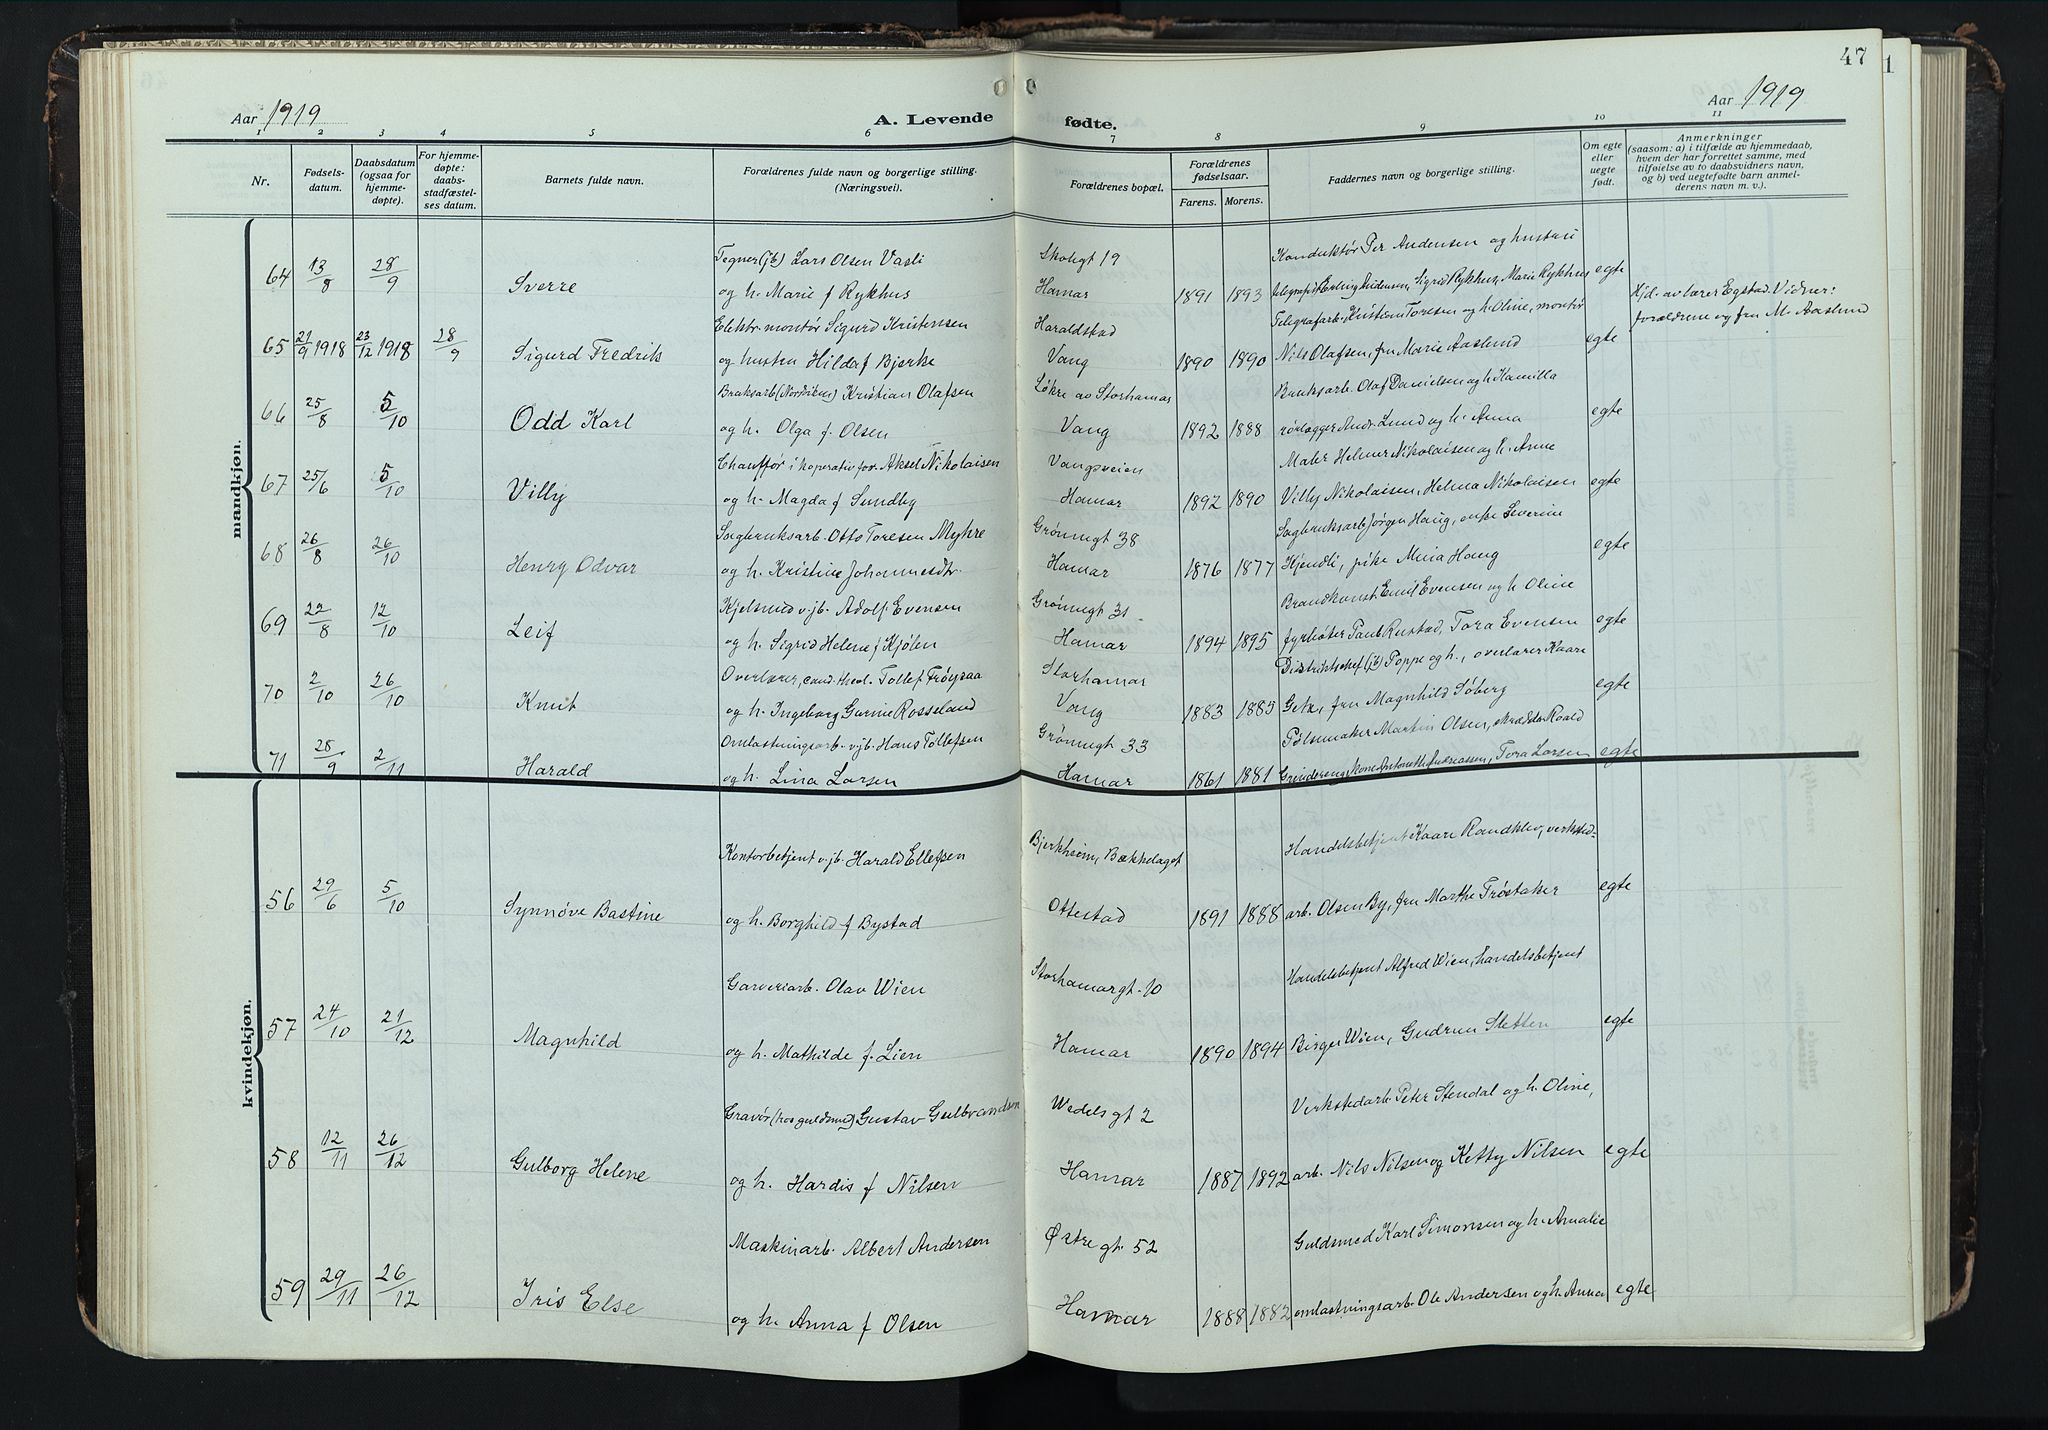 47
1
Aar 1919
A. Levende
fødte.
Aar 1919
1 2 3 4 5 6 7 8 9 10 11
Nr.
Fødsels-
datum.
Daabsdatum
(ogsaa for
hjemme-
døpte).
For hjemme-
døpte:
daabs-
stadfæstel-
ses datum.
Barnets fulde navn.
Forældrenes fulde navn og borgerlige stilling.
(Næringsvei).
Forældrenes bopæl.
Forældrenes
fødselsaar.
Farens. Morens.
Faddernes navn og borgerlige stilling.
Om egte
eller
uegte
født.
Anmerkninger
(saasom: a) i tilfælde av hjemmedaab,
hvem der har forrettet samme, med
tilføielse av to daabsvidners navn,
og b) ved uegtefødte barn anmel-
derens navn m. v.).
mandkjøn.
Tegner (jb) Lars Olsen Vasli Skolegt 19 Konduktør Per Andersen og hustru
64 13/8 28/9 Sverre og h. Marie f Rykhus Hamar 1891 1893 Erling Sigrid Rykhus, Marie Rykhus egte
Elektr. montør Sigurd Kristensen Haraldstad Telegrafarb. Kristian Toresen og h. Oline, montør Hjd. av lærer Egstad. Vidner:
65 21/9 1918 23/12 1918 28/9 Sigurd Fredrik og hustru Hilda f Bjerke Vang 1890 1890 Nils Olafsen, fru Marie Aaslund egte forældrene og fru M. Aaslund
Bruksarb (Nordvikens) Kristian Olafsen Løkre av Storhamar Bruksarb. Olaf Danielsen og h. Kamilla
66 25/8 5/10 Odd Karl og h. Olga f. Olsen Vang 1892 1888 rørlægger Andr. Lund og h. Anna egte
Chauffør i koperativ for. Aksel Nikolaisen Vangsveien Maler Helmer Nikolaisen og h. Anne
67 25/6 5/10 Villy og h. Magda f Sundby Hamar 1892 1890 Villy Nikolaisen, Helma Nikolaisen egte
Sagbruksarb. Otto Toresen Myhre Grønnegt 38 Sagbruksarb Jørgen Haug, enke Severine
68 26/8 26/10 Henry Odvar og h. Kristine Johannesdtr. Hamar 1876 1877 Hjendli, pike Mina Haug egte
Kjelsmed v. jb. Adolf Evensen Grønnegt 31 Brandkonst. Emil Evensen og h Oline
69 22/8 12/10 Leif og h. Sigrid Helene f Kjølen Hamar 1894 1895 fyrbøter Paul Rustad, Tora Evensen egte
Overlærer, cand. theol. Tollef Frøysaa Storhamar Distriktschef (jb) Poppe og h., overlærer Kaare
70 2/10 26/10 Knut og h. Ingeborg Gurine Rosseland Vang 1883 1885 Getz, fru Magnhild Søberg egte
Omlastningsarb. v. jb. Hans Tollefsen Grønnegt 33 Pølsemaker Martin Olsen, skrædder Roald
71 28/9 2/11 Harald og h. Lina Larsen Hamar 1861 1881 Grindereng, kone Antonette Andreassen, Tora Larsen egte
kvindekjøn.
Kontorbetjent v. jb. Harald Ellefsen Bjerkheim, Bækkelaget Handelsbetjent Kaare Randklev, verksted-
56 29/6 5/10 Synnøve Bastine og h. Borghild f Bystad Ottestad 1891 1888 arb. Olsen By, fru Marthe Frøstaker egte
Garveriarb. Olav Wien Storhamargt. 10 Handelsbetjent Alfred Wien, handelsbetjent
57 24/10 21/12 Magnhild og h. Mathilde f. Lien Hamar 1890 1894 Birger Wien, Gudrun Sletten egte
Gravør (hos guldsmed) Gustav Gulbrandsen Wedels gt 2 Verkstedarb Peter Stendal og h. Oline,
58 12/11 26/12 Gulborg Helene og h. Hardis f Nilsen Hamar 1887 1892 arb. Nils Nilsen og Ketty Nilsen egte
Maskinarb. Albert Andersen Østre gt. 52 Guldsmed Karl Simonsen og h. Amalie
59 29/11 26/12 Iris Else og h. Anna f Olsen Hamar 1888 1882 omlastningsarb. Ole Andersen og h. Anna egte